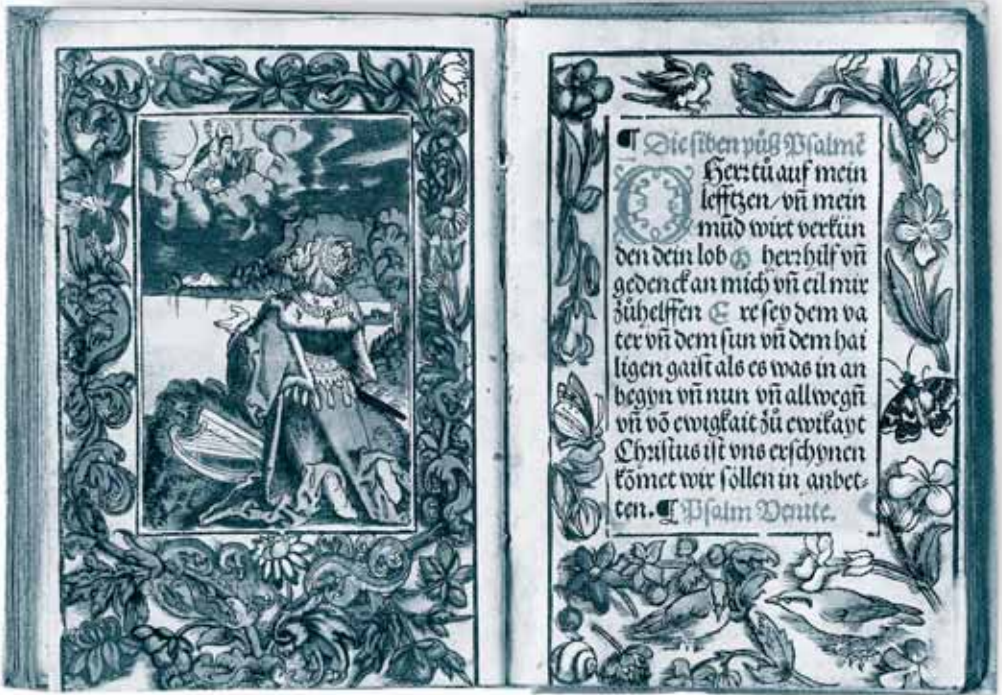 ¶ Die siben půß Psalmẽ
O Herr tů auf mein
lefftzen/vñ mein
mũd wirt verkün
den dein lob O herr hilf vñ
gedenck an mich vñ eil mir
zůhelffen E re sey dem va
ter vñ dem sun vñ dem hai
ligen gaist als es was in an
begyn vñ nun vñ allwegñ
vñ võ ewigkait zů ewikayt
Christus ist vns erschynen
kõmet wir sollen in anbet⸗
ten. ¶ Psalm Venite.